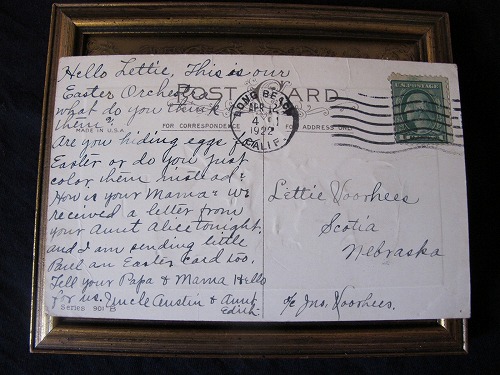 Hello Lettie, This is our
Easter Orchestra
what do you think of
them?
MADE IN U.S.A.
Are you hiding eggs for
Easter or do you just
color them instead?
How is your Mama? We
received a letter from
your Aunt Alice tonight.
and I am sending little
Paul an Easter Card too.
Tell your Papa & Mama Hello
for us. Uncle Austin & Aunt
Edith
Series 901 B
POST CARD
FOR CORRESPONDENCE
FOR ADDRESS ONLY
LONG BEACH
APR 12
4
1922
CALIF.
U.S. POSTAGE
Lettie Voorhees
Scotia
Nebraska
c/o Jno. Voorhees.